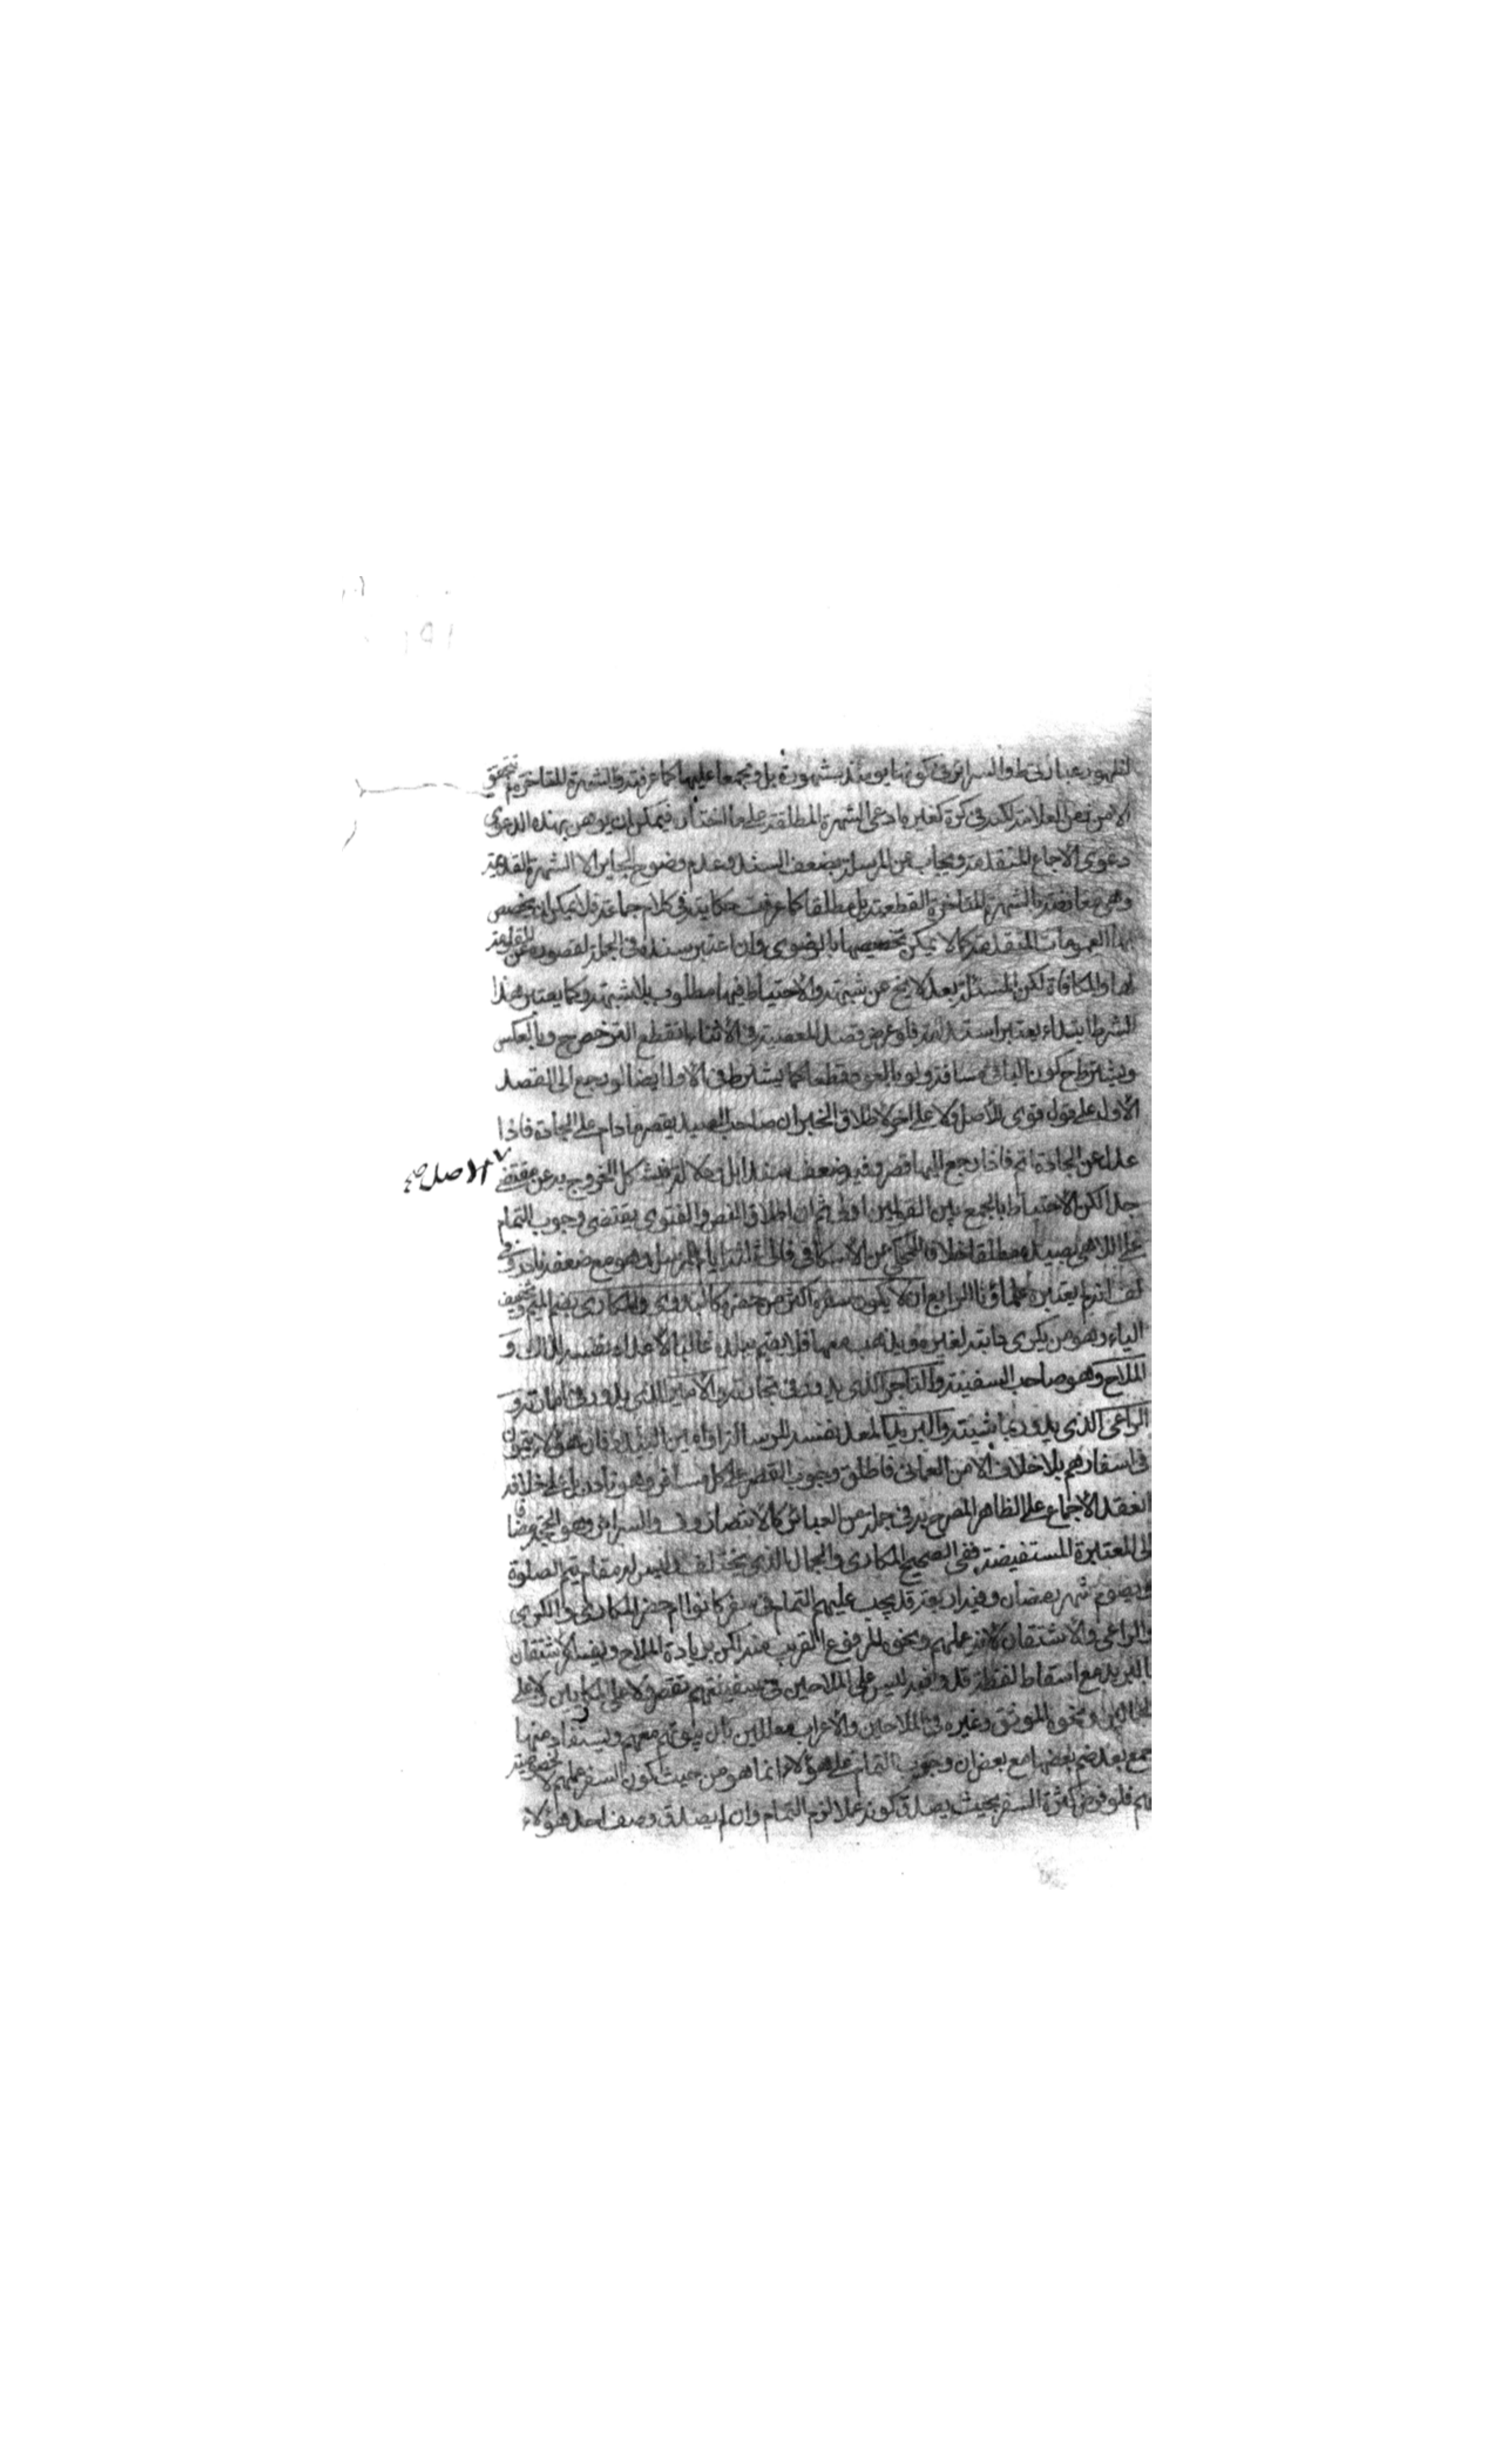 لظهور عبارتي ط والسرائر في كونها يومئذ مشهورة بل ومجمعا عليها كما عرفته والشهرة المتاخرة لم تتحقق
الا من نص العلامة لكنه في كرة كغيره ادعى الشهرة المطلقة على ما اختاره فيمكن ان يوهن بهذه الدعوى
دعوى الاجماع المتقدمة ويجاب عن المرسلة بضعف السند وعدم وضوح الجابر الا الشهرة القديمة
وهي معارضة بالشهرة المتاخرة القطعية بل مطلقا كما عرفت حكايته في كلام جماعة فلا يمكن ان يخصص
بها العمومات المتقدمة كما لا يمكن تخصيصها بالرضوي وان اعتبر سنده في الجملة لقصوره عن المقاومة
لها والمكافاة لكن المسئلة بعد لا يخ عن شبهة والاحتياط فيها مطلوب بلا شبهة وكما يعتبر هذا
الشرط ابتداء يعتبر استدامة فلو عرض قصد المعصية في الاثناء انقطع الترخص ح وبالعكس
ويشترط ح كون الباقي مسافة ولو بالعود قطعا كما يشترط في الاول ايضا لو رجع الى القصد
الاول على قول قوي للاصل ولا على اخر لاطلاق الخبر ان صاحب الصيد يقصر ما دام على الجادة فاذا
عدل عن الجادة اتم فاذا رجع اليها قصر وفيه ضعف سندا بل ودلالة فيشكل الخروج به عن مقتضى
الاصل صح
جدا لكن الاحتياط بالجمع بين القولين اولى ثم ان اطلاق النص والفتوى يقتضي وجوب التمام
على اللاهي بصيده مطلقا خلافا للمحكي عن الاسكافي في ثلثة ايام للمرسل وهو مع ضعفه نادر وفي
لف انه لم يعتبره علماؤنا الرابع ان لا يكون سفره اكثر من حضره كالبدوي والمكاري بضم الميم وتخفيف
الياء وهو من يكري دابته لغيره ويذهب معها فلا يقيم ببلده غالبا لاعداده نفسه لذلك و
الملاح وهو صاحب السفينة والتاجر الذي يدور في تجارته والامير الذي يدور في امارته و
الراعي الذي يدور بماشيته والبريد المعد نفسه للرسالة او امين البيدر فان هؤلاء يتمون
في اسفارهم بلا خلاف الا من العماني فاطلق وجوب القصر على كل مسافر وهو نادر بل على خلافه
انعقد الاجماع على الظاهر المصرح به في جملة من العبائر كالانتصار وف والسرائر وهو الحجة مضافا
الى المعتبرة المستفيضة ففي الصحيح المكاري والجمال الذي يختلف وليس له مقام يتم الصلوة
ويصوم شهر رمضان وفيه اربعة قد يجب عليهم التمام في سفر كانوا ام حضر المكاري والكرى
والراعي والاشتقان لانه عملهم ونحوه المرفوع القريب منه لكن بزيادة الملاح وتفسير الاشتقان
بالبريد مع اسقاط لفظة قد وفيه ليس على الملاحين في سفينتهم تقصير ولا على المكارين ولا على
الجمالين ونحوه الموثق وغيره في الملاحين والاعراب معللين بان بيوتهم معهم ويستفاد منها
جمع بعد ضم بعضها مع بعض ان وجوب التمام على هؤلاء انما هو من حيث كون السفر عملهم لا لخصوصية
بهم فلو فرض كثرة السفر بحيث يصدق كونه عملا لزم التمام وان لم يصدق وصف احد هؤلاء